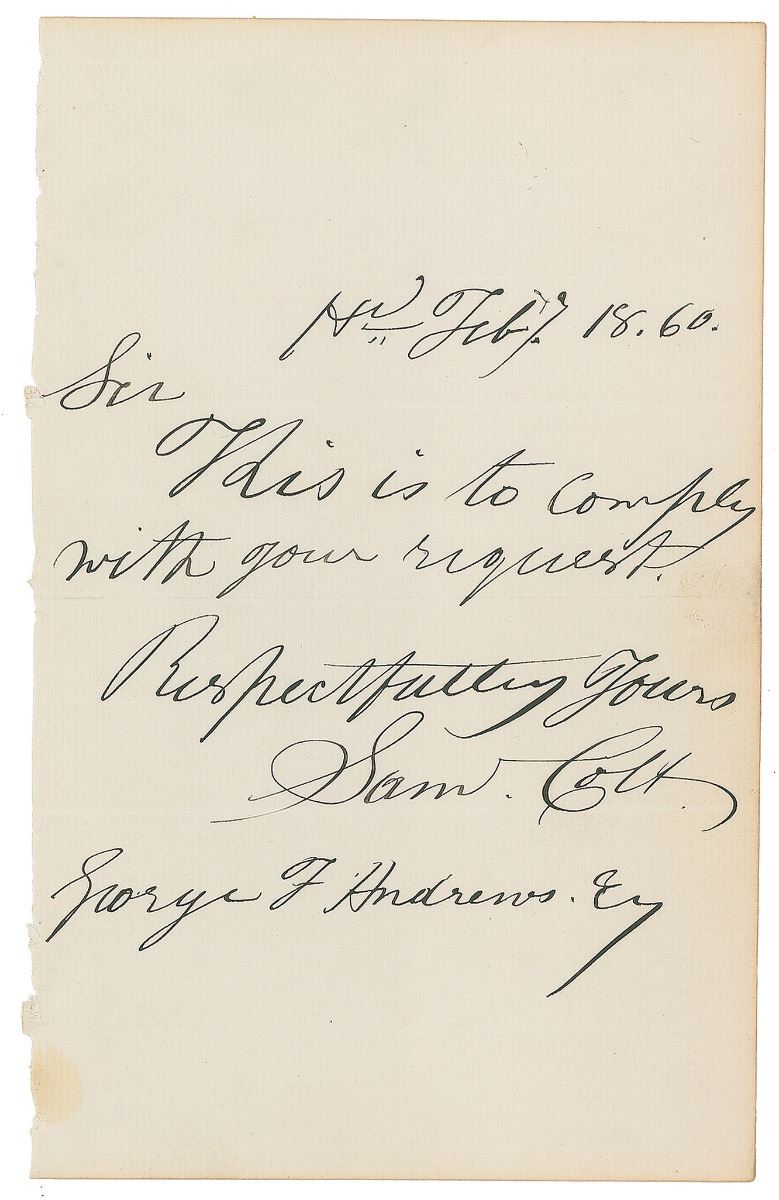 Feby. 18.60.
Sir
This is to comply
with your request.
Respectfully Yours
Saml. Colt.
George F Andrews. Esq